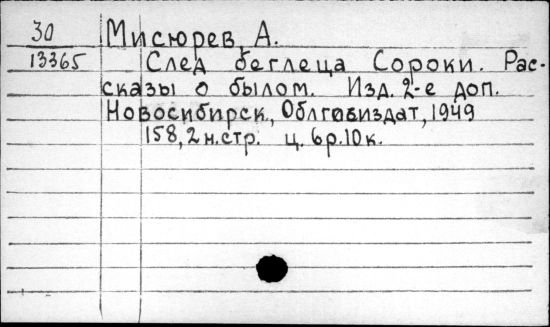 30 Мисюрев, А.
13365 След беглеца Сороки. Рас-
сказы о былом. Изд. 2-е доп.
Новосибирск, Облгосиздат, 1949
158, 2 н.стр. ц. 6р.10к.